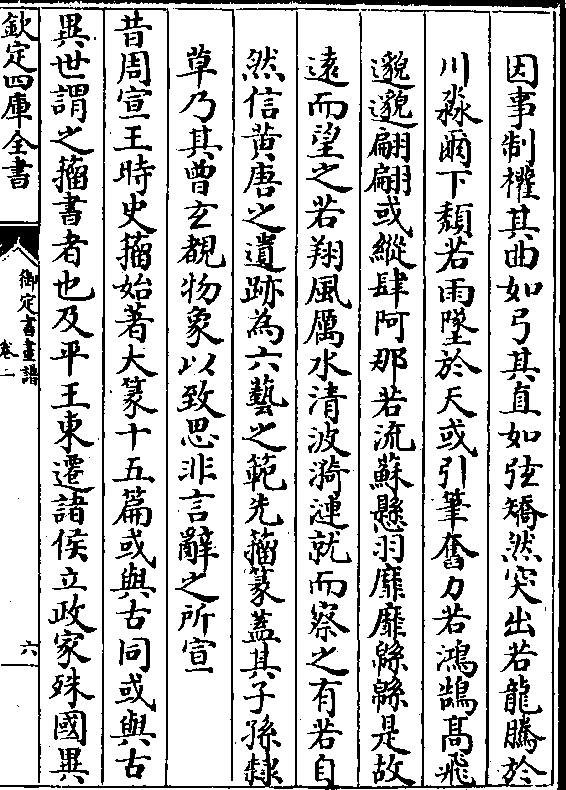 因事制權其曲如弓其直如弦矯然突出若龍騰於
川淼爾下頹若雨墜於天或引筆奮力若鴻鵠髙飛
邈邈翩翩或縱肆阿那若流蘇懸羽靡靡緜緜是故
逺而望之若翔風厲水清波漪漣就而察之有若自
然信黄唐之遺跡為六藝之範先籀篆葢其子孫隸
草乃其曽𤣥覩物象以致思非言辭之所宣
昔周宣王時史籀始著大篆十五篇或與古同或與古
異世謂之籀書者也及平王東遷諸侯立政家殊國異
欽定四庫全書
御定書畫譜
卷一
六